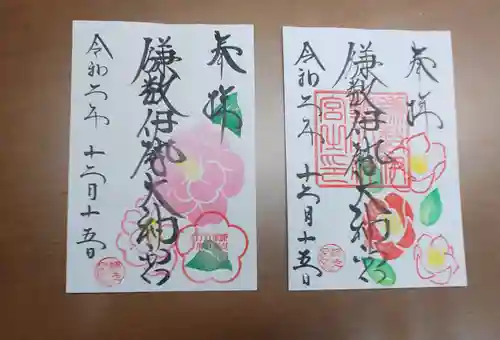 奉拝
鎌數伊勢大神宮
令和六年十二月十五日
奉拝
鎌數伊勢大神宮
令和六年十二月十五日